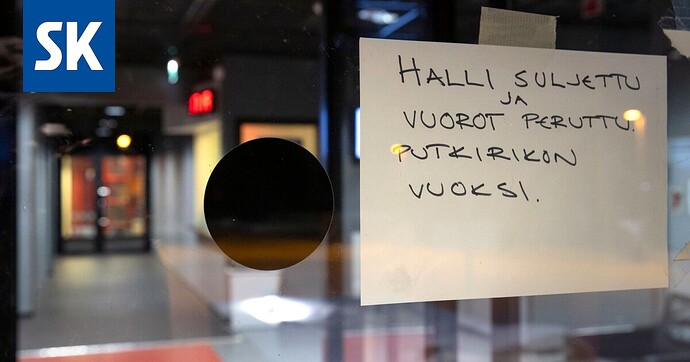 SK
HALLI SULJETTU
JA
VUOROT PERUTTU.
PUTKIRIKON
VUOKSI.